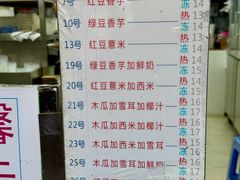 7号 红豆香芋 冻 14
10号 绿豆香芋 热 13 冻 14
13号 红豆薏米 热 13 冻 14
19号 绿豆香芋加鲜奶 热 14 冻 15
20号 红豆薏米加西米 热 14 冻 15
21号 木瓜加雪耳加椰汁 热 16 冻 17
22号 木瓜加西米加椰汁 热 16 冻 17
23号 木瓜加西米加雪耳 热 16 冻 17
25号 木瓜加雪耳加鲜奶 热 16